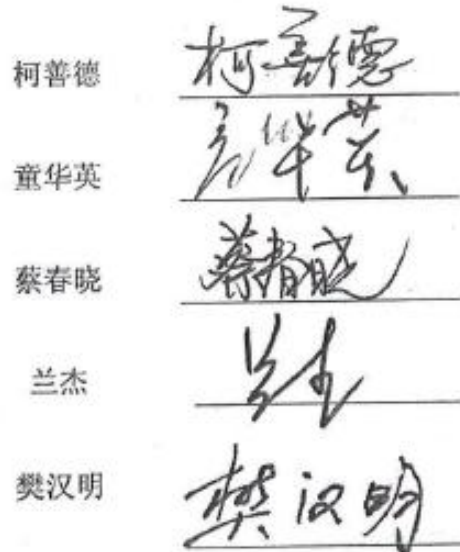 柯善德 柯善德
童华英 童华英
蔡春晓 蔡春晓
兰杰 兰杰
樊汉明 樊汉明